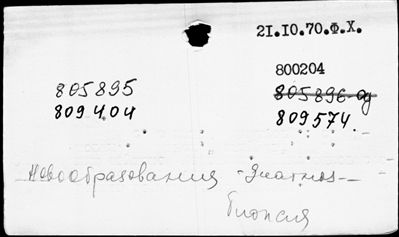 21.10.70.Ф.Х.
800204
805895
805896-од
809404
809574.
Новообразования - Диагноз -
Биопсия